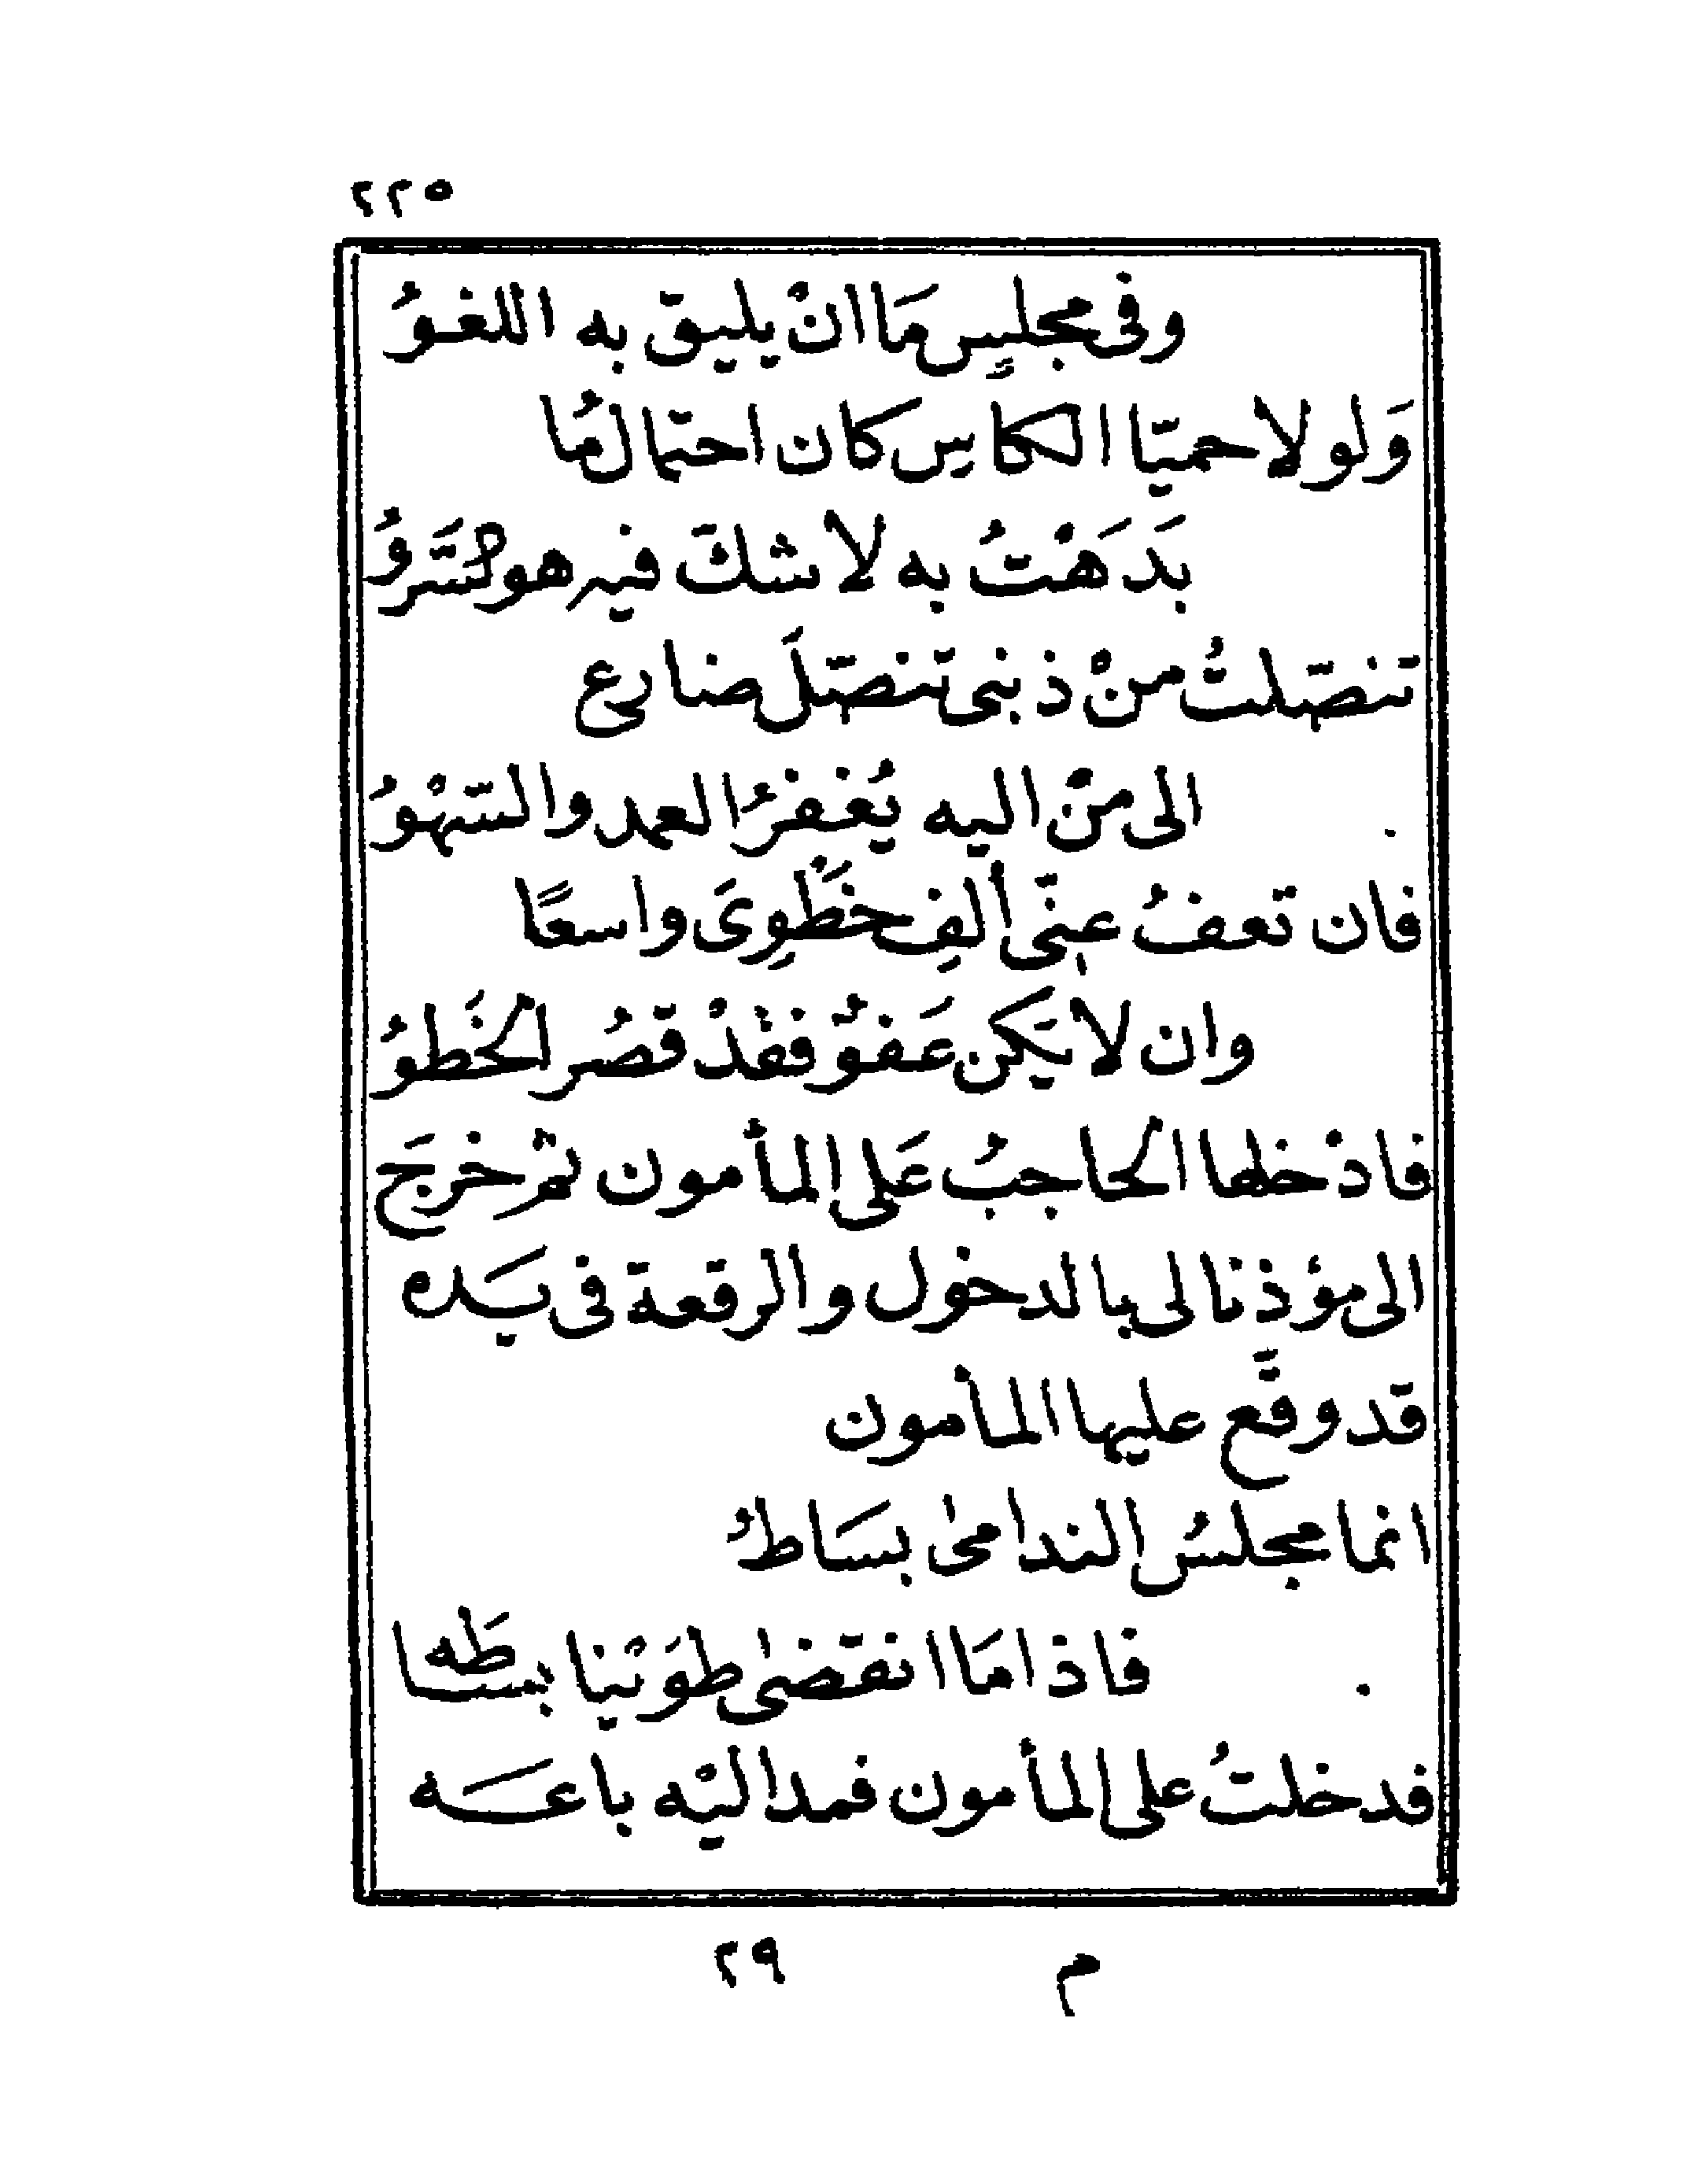 ٢٢٥
وفى مجلسٍ مَا انْ يليق به اللغوُ
وَلولا حميّا الكاسِ كان احتمالُ مُا
بَدَهْتُ به لا شكّ فيه هو السَّروُ
تنصّلتُ منْ ذنبى تنصّلَ ضارع
الى منْ اليه يُغفرُ العمد والسّهْوُ
فان تعفُ عنّى ألفِ خطْوِىَ واسعًا
وان لا يَكن عَفوٌ فقدْ قصُر الخَطوُ
فادْخلها الحاجبُ عَلى المأمون ثمّ خرجَ
الى مؤذنا لى بالدخول والرقعة فى يَده
قد وقَّع عليها المأمون
انما مجلسُ الندامىٰ بسَاطُ
فاذا مَا انقضىٰ طوَيْنا بسَاطَه
فدخلتُ على المأمون فمد اليْه باعَه
م ٢٩